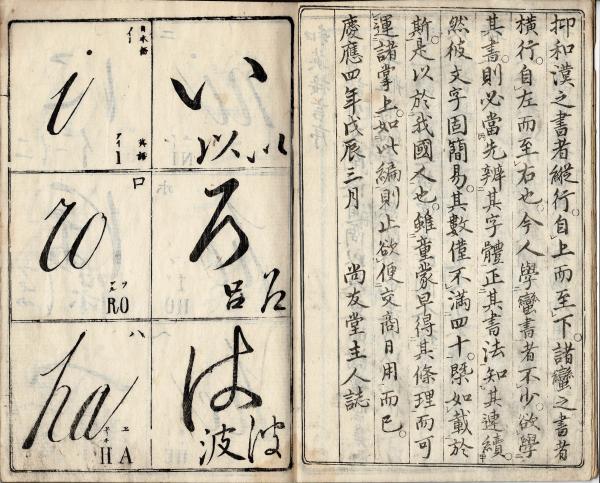 抑和漢之書者縱行。自上而至下。諸蠻之書者
橫行。自左而至右也。今人學蠻書者不少。欲學
其書。則必當先辨其字體。正其書法。知其連續。
然彼文字固簡易。其數僅不滿四十。槩如載於
斯。是以於我國人也。雖童蒙早得其條理。而可
運諸掌上。如此編。則止欲便交商日用而已。
慶應四年戊辰三月 尚友堂主人誌
い
以
以
日本語
イ
i
英語
アイ
I
ろ
呂
呂
ロ
ro
RO
は
波
波
ハ
ha
HA